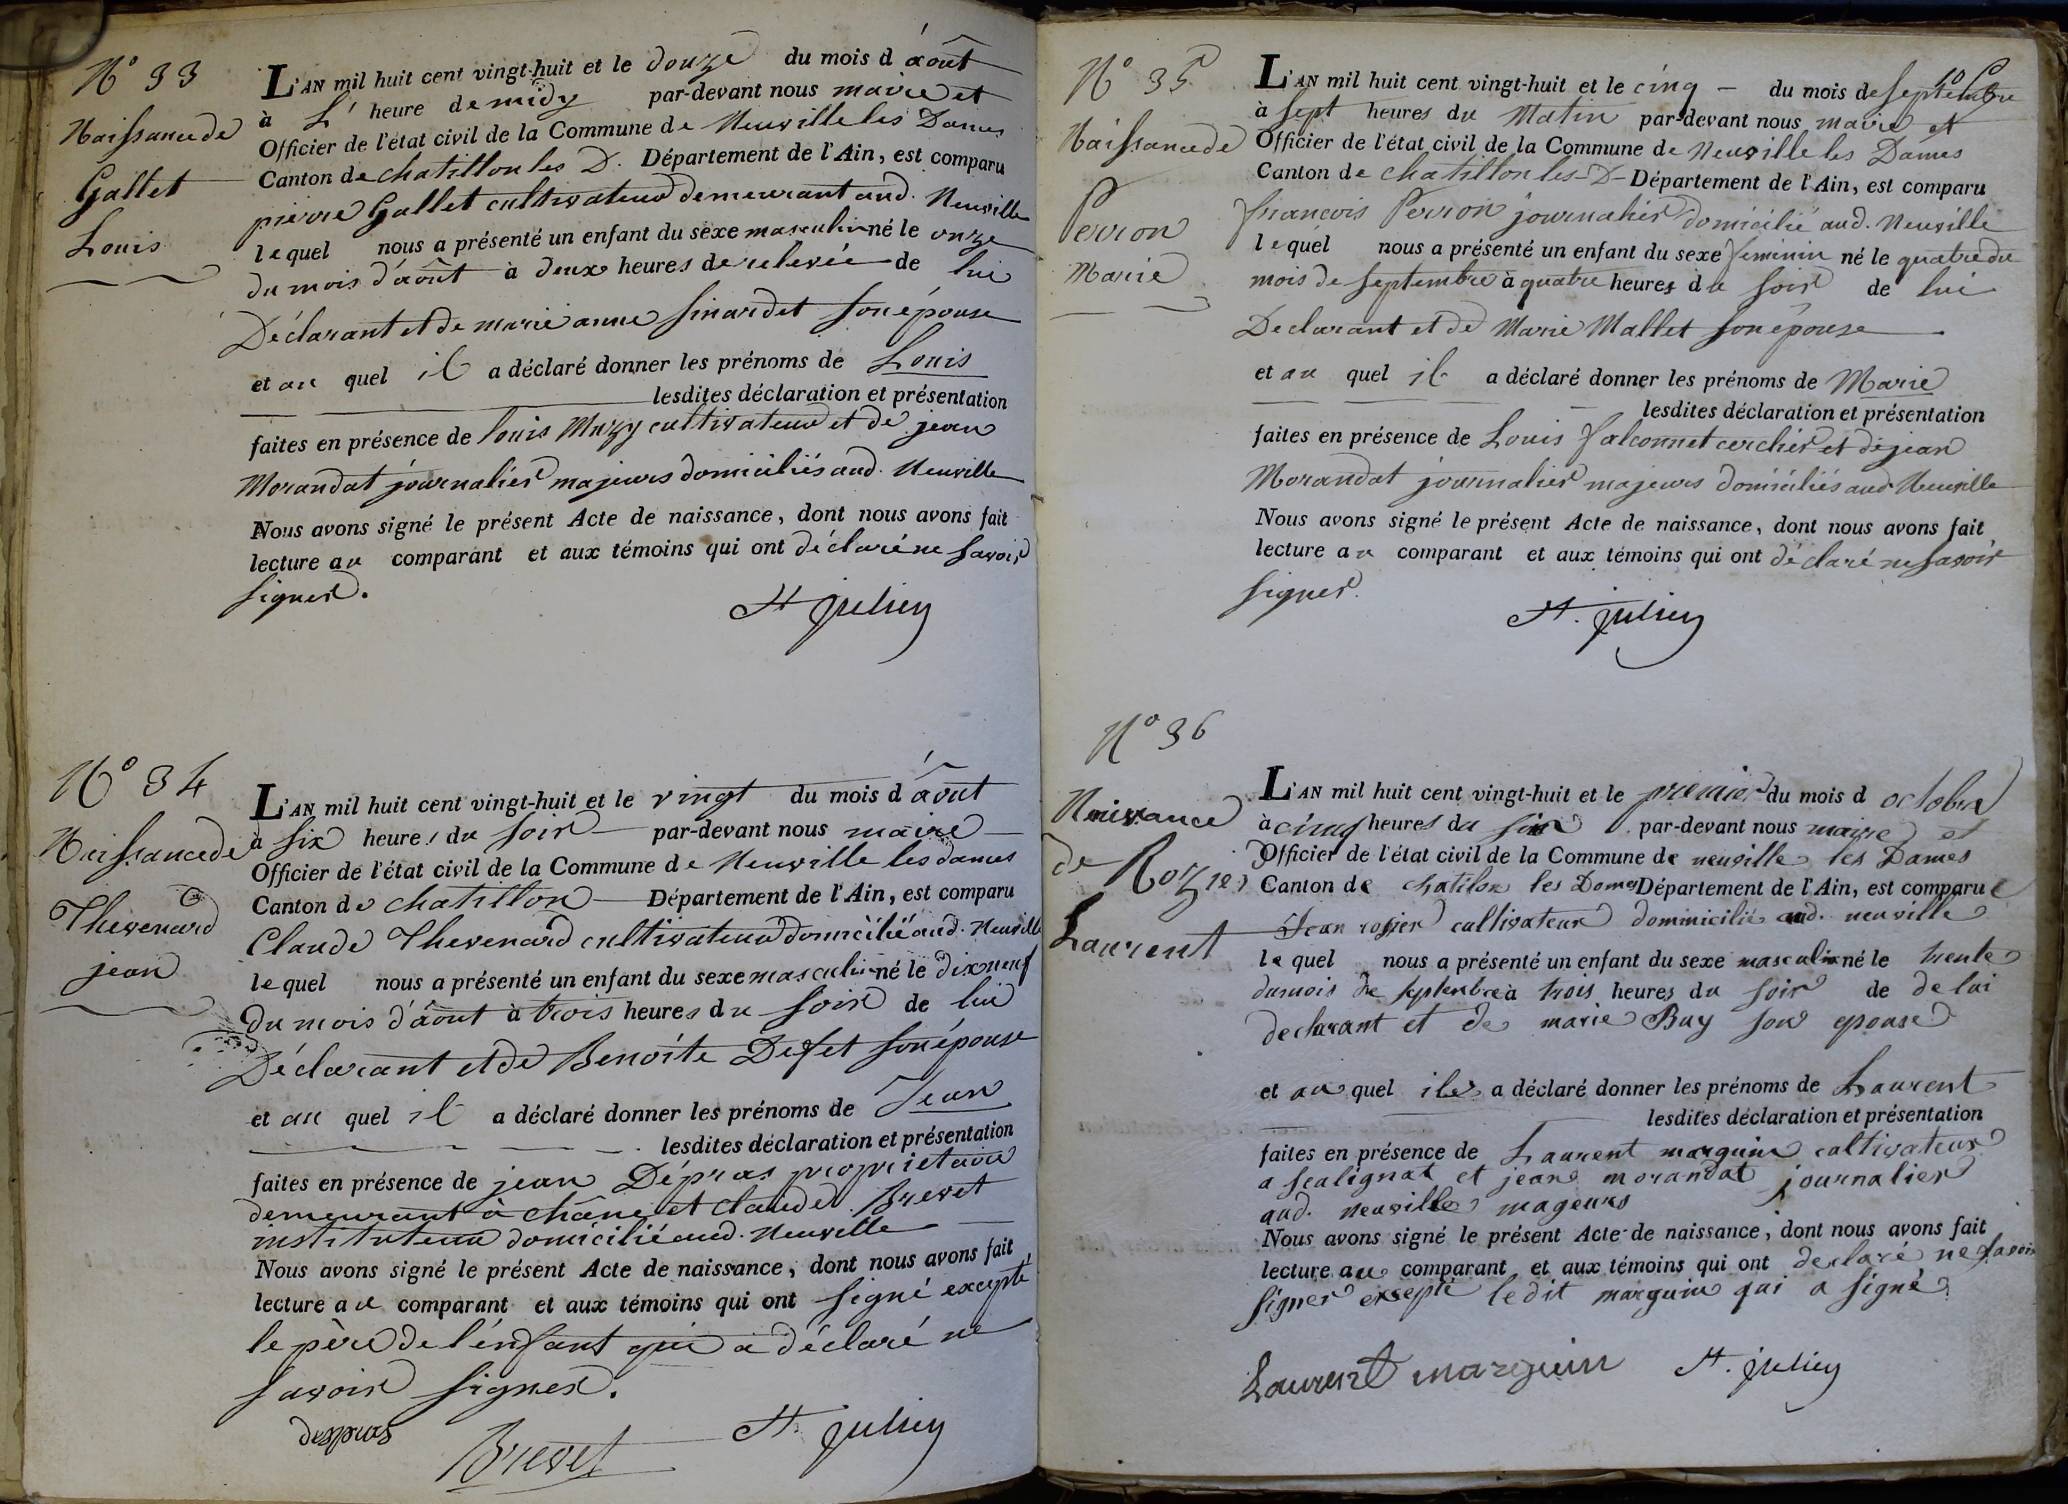 N° 33
Naissance de
Gallet
Louis
L'AN mil huit cent vingt-huit et le douze du mois d'août
à L' heure de midy par-devant nous maire et
Officier de l'état civil de la Commune de Neuville les Dames
Canton de chatillon les D. Département de l'Ain, est comparu
pierre Gallet cultivateur demeurant aud. Neuville
lequel nous a présenté un enfant du sexe masculin né le onze
du mois d'août à deux heures de relevée de lui
Déclarant et de marie anne Sinardet son épouse
et au quel il a déclaré donner les prénoms de Louis
lesdites déclaration et présentation
faites en présence de louis Muzy cultivateur et de jean
Morandat journalier majeurs domiciliés aud. Neuville
Nous avons signé le présent Acte de naissance, dont nous avons fait
lecture au comparant et aux témoins qui ont déclaré ne savoir
signer.
St julien
N° 34
Naissance de
Thevenard
jean
L'AN mil huit cent vingt-huit et le vingt du mois d'août
à six heures du soir par-devant nous maire
Officier de l'état civil de la Commune de Neuville les dames
Canton de chatillon Département de l'Ain, est comparu
Claude Thevenard cultivateur domicilié aud. Neuville
lequel nous a présenté un enfant du sexe masculin né le dix neuf
du mois d'août à trois heures du soir de lui
Déclarant et de Benoite Defet son épouse
et au quel il a déclaré donner les prénoms de Jean
lesdites déclaration et présentation
faites en présence de jean Dépras proprietaire
demeurant à châne et claude Brevet
instituteur domicilié aud. Neuville
Nous avons signé le présent Acte de naissance, dont nous avons fait
lecture au comparant et aux témoins qui ont signé excepté
le père de l'enfant qui a déclaré ne
savoir signer.
despras
Brevet
St julien
10
N° 35
Naissance de
Perron
Marie
L'AN mil huit cent vingt-huit et le cinq du mois de septembre
à sept heures du Matin par-devant nous maire et
Officier de l'état civil de la Commune de Neuville les Dames
Canton de chatillon les D Département de l'Ain, est comparu
francois Perron journalier domicilié aud. Neuville
lequel nous a présenté un enfant du sexe feminin né le quatre du
mois de septembre à quatre heures du soir de lui
Declarant et de Marie Mallet son épouse
et au quel il a déclaré donner les prénoms de Marie
lesdites déclaration et présentation
faites en présence de Louis falconnet cerclier et de jean
Morandat journalier majeurs domiciliés aud Neuville
Nous avons signé le présent Acte de naissance, dont nous avons fait
lecture au comparant et aux témoins qui ont déclaré ne savoir
signer.
St. julien
N° 36
Naissance
de Rozier
Laurent
L'AN mil huit cent vingt-huit et le premier du mois d octobre
à cinq heures du soir par-devant nous maire et
Officier de l'état civil de la Commune de neuville les Dames
Canton de chatilon les Dames Département de l'Ain, est comparu
Jean rosier cultivateur dominicilié aud. neuville
lequel nous a présenté un enfant du sexe masculin né le trente
du mois de septembre à trois heures du soir de de lui
declarant et de marie Buy son epouse
et au quel il a déclaré donner les prénoms de Laurent
lesdites déclaration et présentation
faites en présence de Laurent marguin cultivateur
a sealignat et jean morandat journalier
aud. neuville mageurs
Nous avons signé le présent Acte de naissance, dont nous avons fait
lecture au comparant et aux témoins qui ont declaré ne savoir
signer excepté ledit marguin qui a signé
Laurent marguin
St. julien